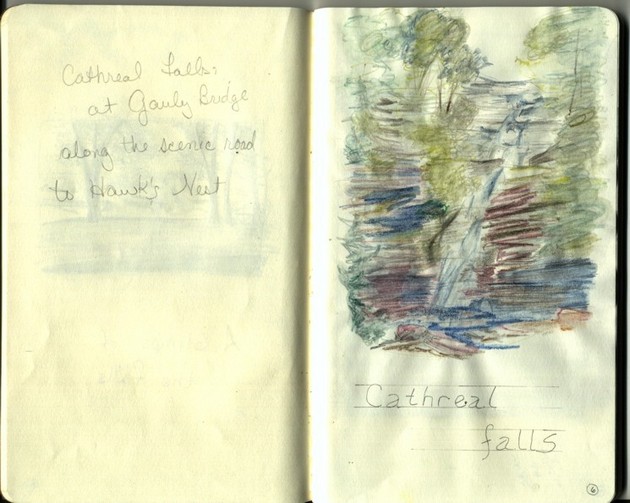 Cathreal Falls:
at Gauly Bridge
along the scenic road
to Hawk's Nest
Cathreal
falls
6